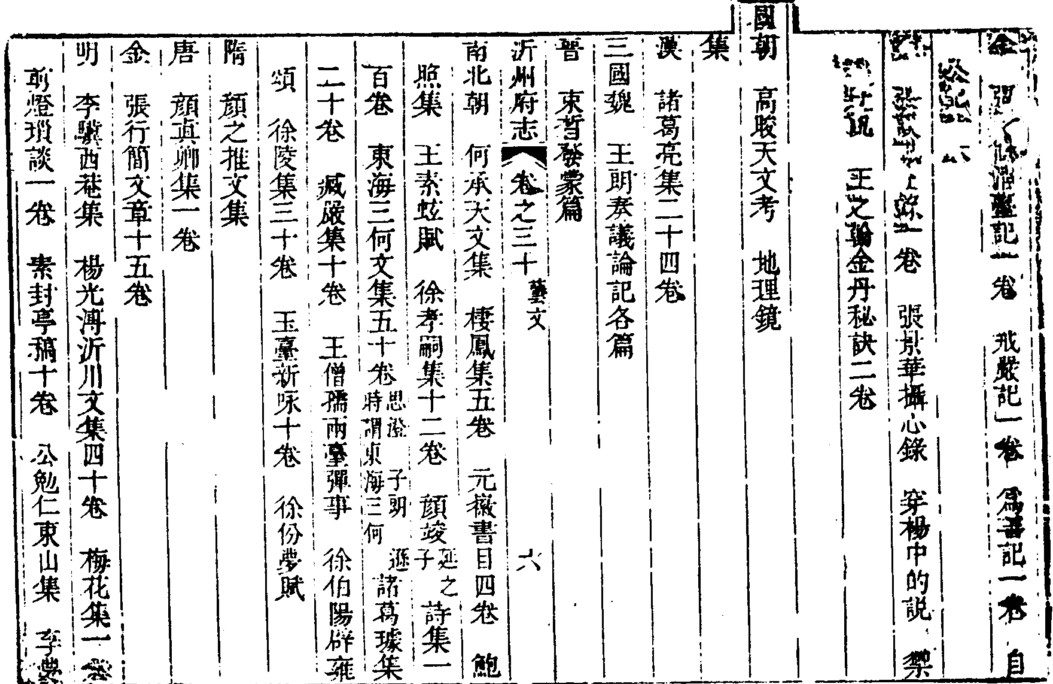 金 張 記一卷 戒嚴記一卷 爲善記一卷 自
公 六
錄一卷 張景華攝心錄 穿楊中的說 禦
說 王之翰金丹秘訣二卷
國朝 高睃天文考 地理鏡
集
漢 諸葛亮集二十四卷
三國魏 王朗奏議論記各篇
晉 束晳發蒙篇
沂州府志 卷之三十 藝文 六
南北朝 何承天文集 棲鳳集五卷 元嶶書目四卷 鮑
照集 王素蚿賦 徐孝嗣集十二卷 顏竣延之子詩集一
百卷 東海三何文集五十卷思澄 子朗 遜時謂東海三何 諸葛璩集
二十卷 臧嚴集十卷 王僧孺兩臺彈事 徐伯陽辟雍
頌 徐陵集三十卷 玉臺新咏十卷 徐份夢賦
隋 顏之推文集
唐 顏真卿集一卷
金 張行簡文章十五卷
明 李驥西菴集 楊光溥沂川文集四十卷 梅花集一卷
剪燈瑣談一卷 素封亭稿十卷 公勉仁東山集 李